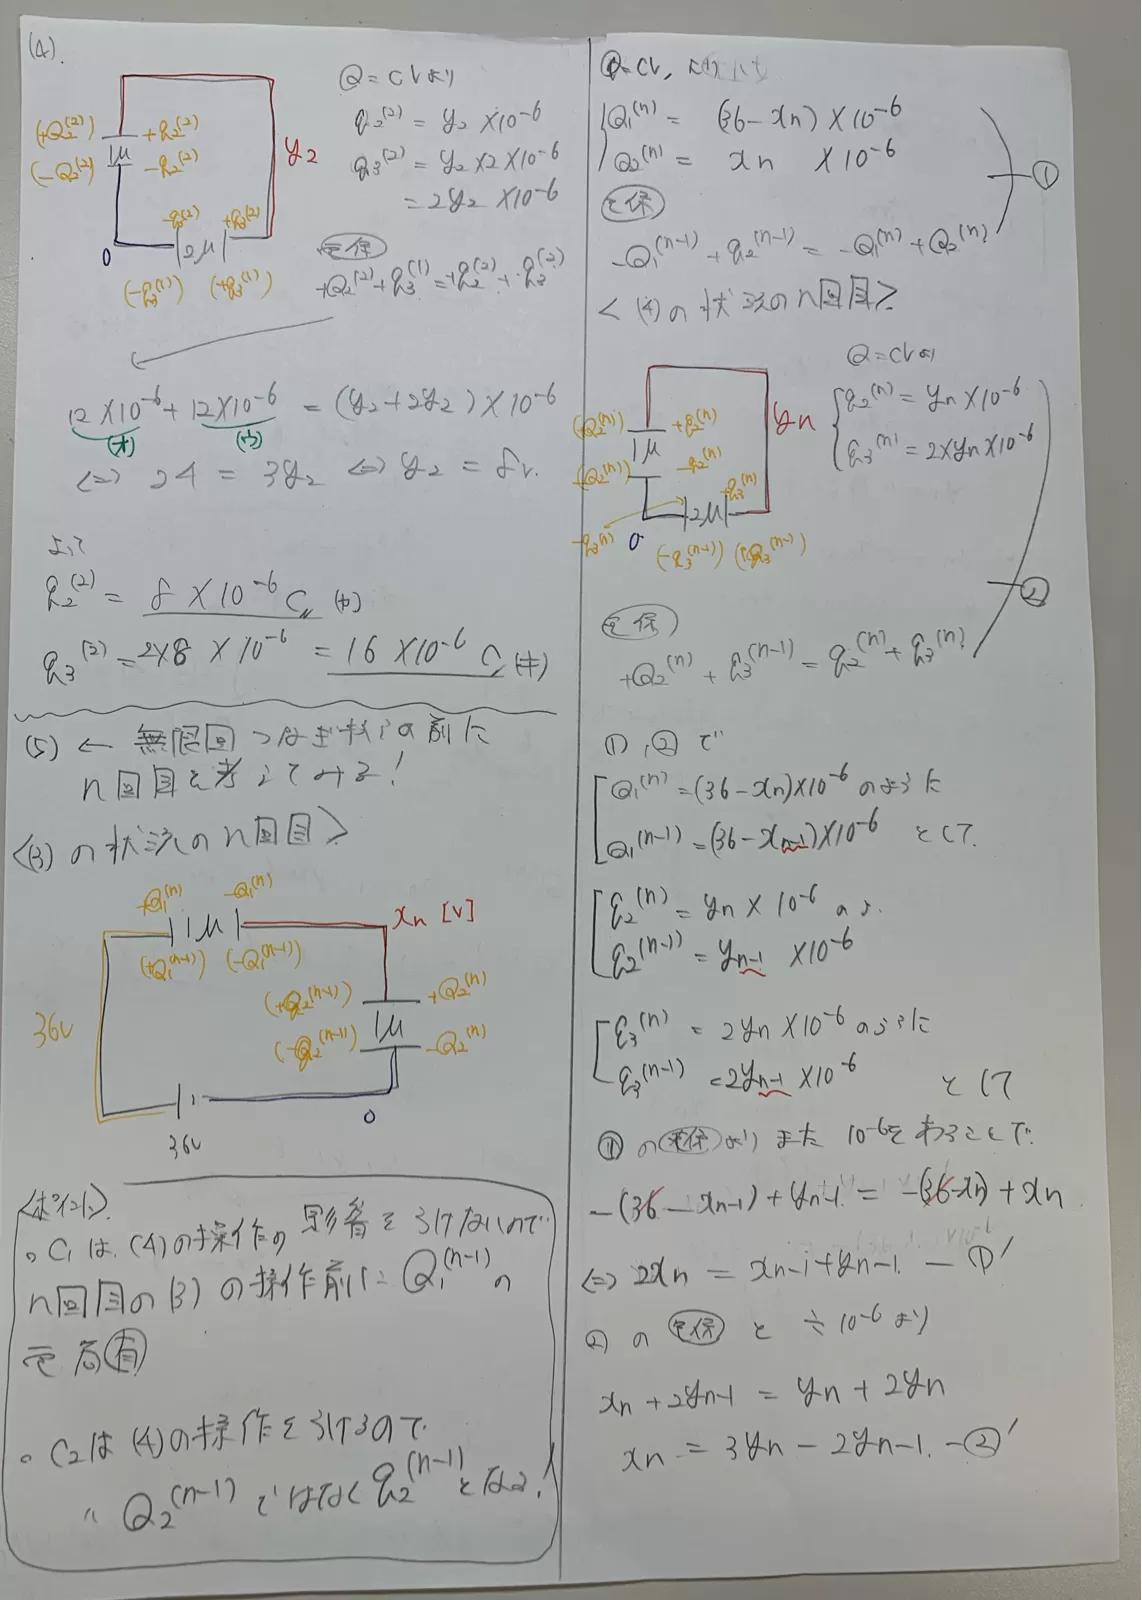 (4).
Q=CVより
(+Q₂⁽²⁾) +q₂⁽²⁾
(-Q₂⁽²⁾) 1μ -q₂⁽²⁾
y₂
q₂⁽²⁾ = y₂ ×10⁻⁶
q₃⁽²⁾ = y₂ ×2 ×10⁻⁶
= 2y₂ ×10⁻⁶
-q₃⁽²⁾ 2μ +q₃⁽²⁾
0
(-q₃⁽¹⁾) (+q₃⁽¹⁾)
電保
+Q₂⁽²⁾+q₃⁽¹⁾=+q₂⁽²⁾+q₃⁽²⁾
12×10⁻⁶+12×10⁻⁶ = (y₂+2y₂)×10⁻⁶
⇔ 24 = 3y₂ ⇔ y₂ = 8V.
よって
q₂⁽²⁾ = 8×10⁻⁶ C (カ)
q₃⁽²⁾ = 2×8 ×10⁻⁶ = 16 ×10⁻⁶ C (キ)
(5) ← 無限回つなぎかえの前に
n回目を考えてみる!
<(3)の状況のn回目>
+Q₁⁽ⁿ⁾ 1μ -Q₁⁽ⁿ⁾
xn [V]
(+Q₁⁽ⁿ⁻¹⁾) (-Q₁⁽ⁿ⁻¹⁾)
(+Q₂⁽ⁿ⁻¹⁾) +Q₂⁽ⁿ⁾
36V
1μ
(-Q₂⁽ⁿ⁻¹⁾) -Q₂⁽ⁿ⁾
0
36V
<ポイント>
。C₁は、(4)の操作の影響をうけないので
n回目の(3)の操作前に Q₁⁽ⁿ⁻¹⁾の
電荷有
。C₂は(4)の操作をうけるので
Q₂⁽ⁿ⁻¹⁾ではなくq₂⁽ⁿ⁻¹⁾となる!
Q=CV,
Q₁⁽ⁿ⁾ = (36-xn)×10⁻⁶
Q₂⁽ⁿ⁾ = xn ×10⁻⁶
①
電保
-Q₁⁽ⁿ⁻¹⁾+q₂⁽ⁿ⁻¹⁾=-Q₁⁽ⁿ⁾+Q₂⁽ⁿ⁾
<(4)の状況のn回目>
Q=CVより
(+Q₂⁽ⁿ⁾) +q₂⁽ⁿ⁾
1μ
yn
q₂⁽ⁿ⁾=yn×10⁻⁶
q₃⁽ⁿ⁾=2×yn×10⁻⁶
(-Q₂⁽ⁿ⁾) -q₂⁽ⁿ⁾
2μ +q₃⁽ⁿ⁾
-q₃⁽ⁿ⁾ 0
(-q₃⁽ⁿ⁻¹⁾) (+q₃⁽ⁿ⁻¹⁾)
②
電保
+Q₂⁽ⁿ⁾+q₃⁽ⁿ⁻¹⁾=q₂⁽ⁿ⁾+q₃⁽ⁿ⁾
①,②で
Q₁⁽ⁿ⁾=(36-xn)×10⁻⁶のように
Q₁⁽ⁿ⁻¹⁾=(36-xn-1)×10⁻⁶ として
q₂⁽ⁿ⁾=yn×10⁻⁶
q₂⁽ⁿ⁻¹⁾=yn-1 ×10⁻⁶
q₃⁽ⁿ⁾ = 2yn×10⁻⁶のように
q₃⁽ⁿ⁻¹⁾=2yn-1 ×10⁻⁶ として
①の電保よりまた10⁻⁶をわることで.
-(36-xn-1)+yn-1=-(36-xn)+xn
⇔ 2xn = xn-1+yn-1. -①′
②の電保と÷10⁻⁶より
xn+2yn-1=yn+2yn
xn=3yn-2yn-1. -②′